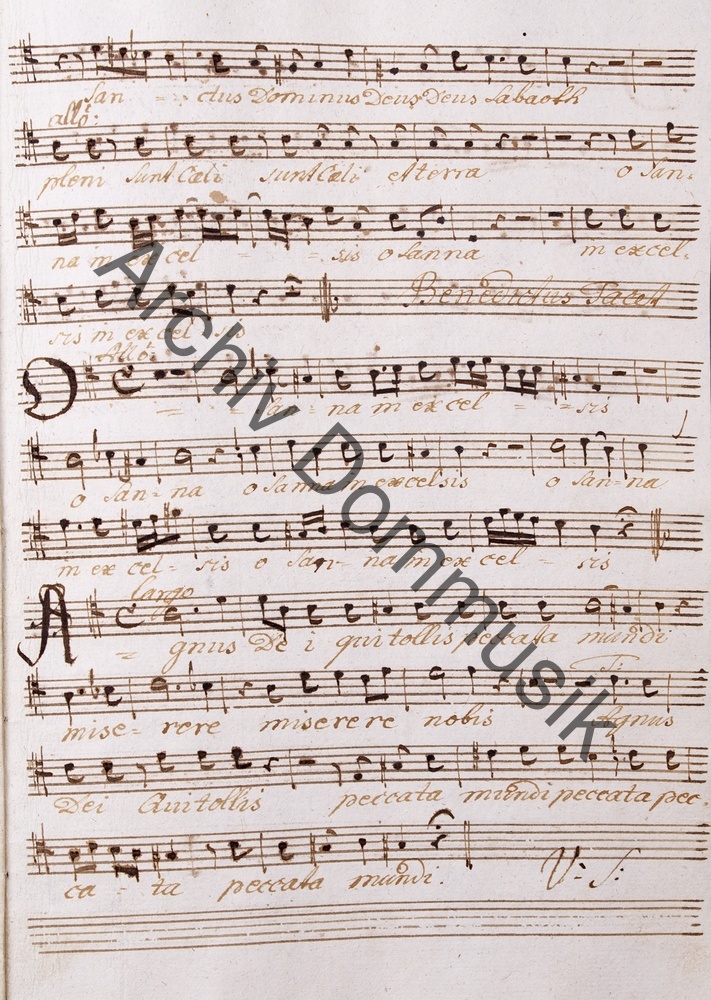 San - - ctus Dominus Deus Deus Sabaoth
allo:
pleni sunt Cœli sunt Cœli et terra O San-
na in excel - - sis Osanna in excel-
sis in excel sis Benedictus Tacet
Allo:
O - - San - na in excel - - sis
O San - na O Sanna in excelsis O San - na
in excel - sis O San - na in excel - sis
Largo
Agnus De i qui tollis peccata mundi
T:
mise - rere miserere nobis Agnus
Dei Qui tollis peccata mundi peccata pec-
ca - ta peccata mundi.
V: S:
Archiv Dommusik